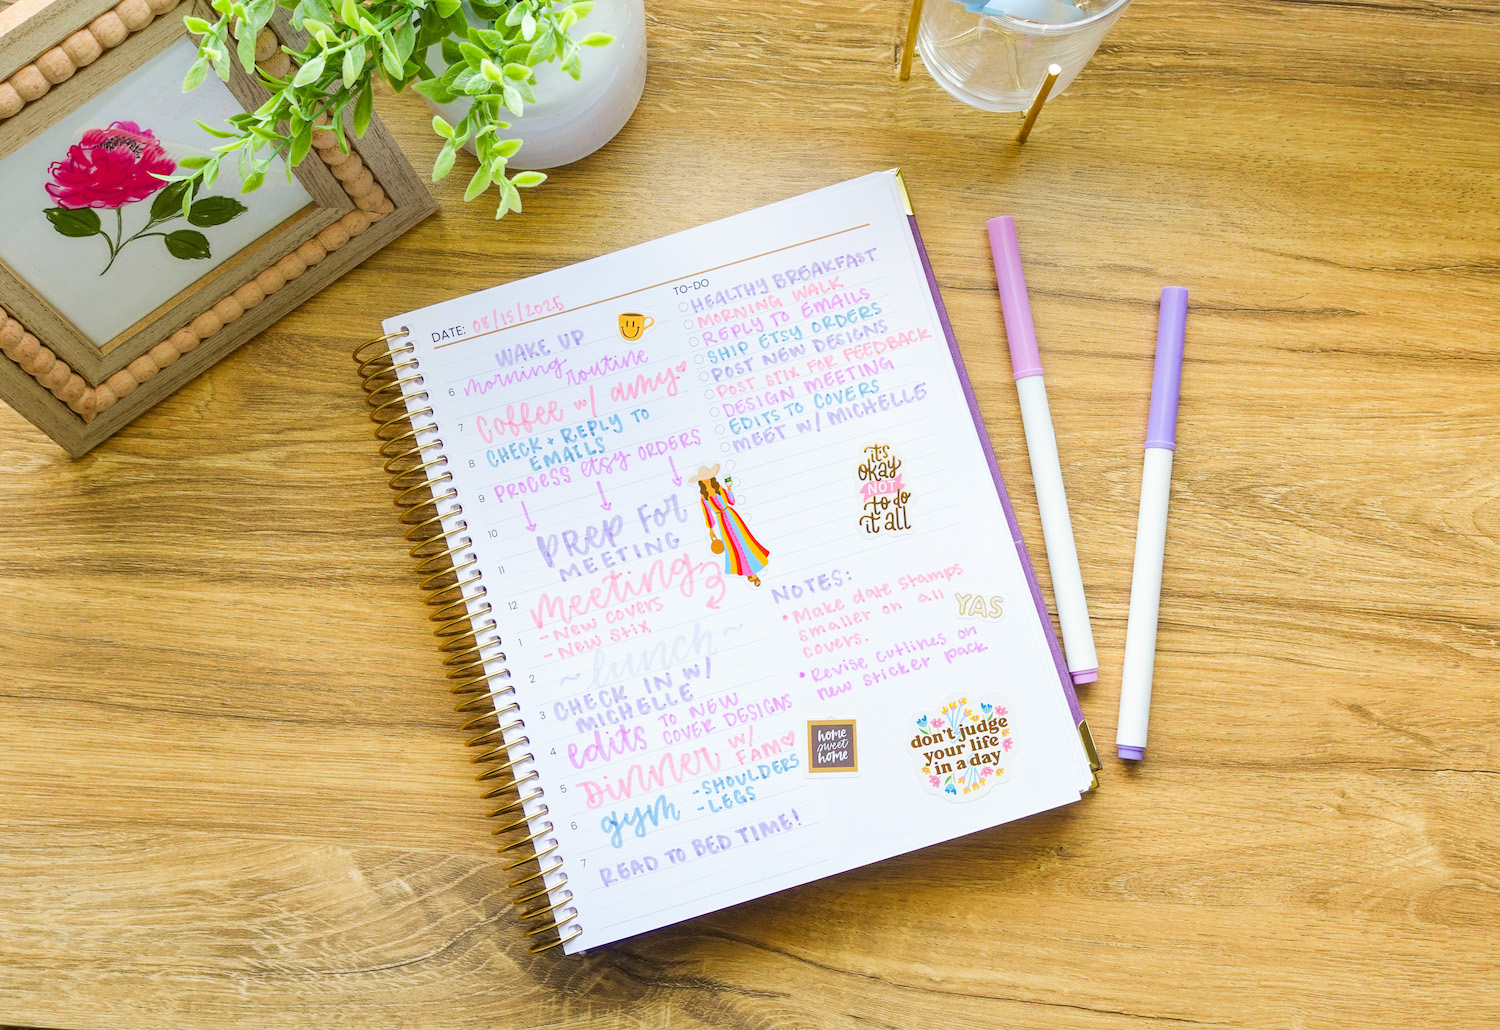 DATE: 08/15/2025
WAKE UP
6 morning routine
7 Coffee w/ amy
8 CHECK + REPLY TO
EMAILS
9 PROCESS etsy ORDERS
10 PREP FOR
11 MEETING
12 Meeting
- New covers
1 - New stix
2 ~ lunch ~
3 CHECK IN W/
MICHELLE
4 edits TO NEW
COVER DESIGNS
5 Dinner w/
FAM
6 gym - SHOULDERS
- LEGS
7 READ TO BED TIME!
TO-DO
HEALTHY BREAKFAST
MORNING WALK
REPLY TO EMAILS
SHIP ETSY ORDERS
POST NEW DESIGNS
POST STIX FOR FEEDBACK
DESIGN MEETING
EDITS TO COVERS
MEET W/ MICHELLE
it's
okay
NOT
to do
it all
NOTES:
• Make date stamps
smaller on all
covers.
YAS
• Revise cutlines on
new sticker pack
home
sweet
home
don't judge
your life
in a day